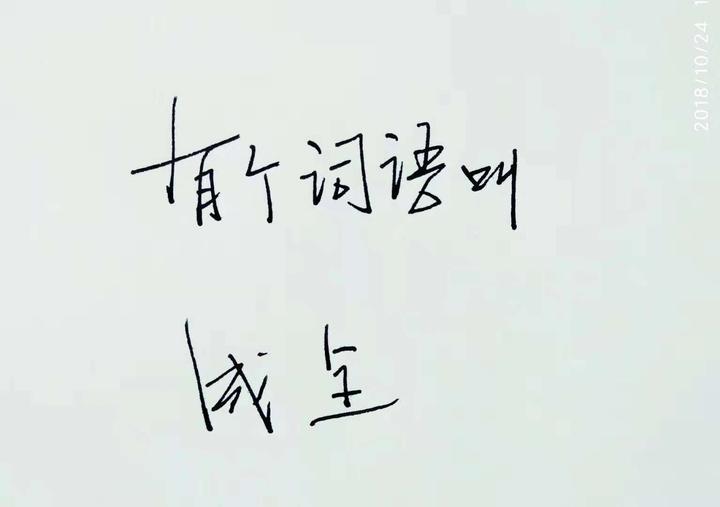 有个词语叫
成全
2018/10/24